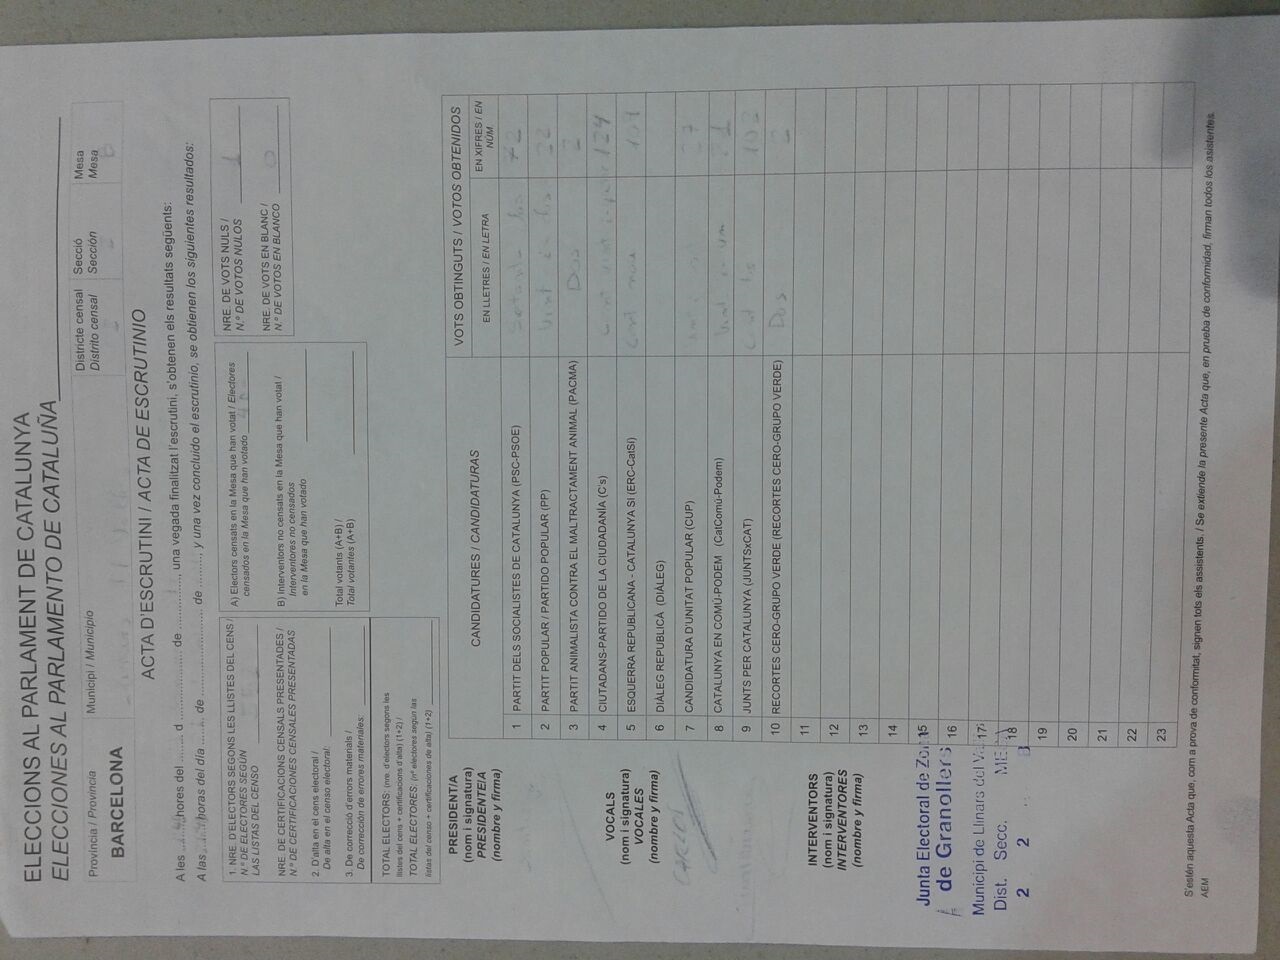 ELECCIONS AL PARLAMENT DE CATALUNYA
ELECCIONES AL PARLAMENTO DE CATALUÑA
Província / Provincia
BARCELONA
Municipi / Municipio
Districte censal
Distrito censal
Secció
Sección
Mesa
Mesa
B
ACTA D'ESCRUTINI / ACTA DE ESCRUTINIO
A les hores del d de , una vegada finalitzat l'escrutini, s'obtenen els resultats següents:
A las horas del día de de , y una vez concluido el escrutinio, se obtienen los siguientes resultados:
1. NRE. D'ELECTORS SEGONS LES LLISTES DEL CENS /
N.º DE ELECTORES SEGÚN
LAS LISTAS DEL CENSO
NRE. DE CERTIFICACIONS CENSALS PRESENTADES /
N.º DE CERTIFICACIONES CENSALES PRESENTADAS
2. D'alta en el cens electoral /
De alta en el censo electoral:
3. De correcció d'errors materials /
De corrección de errores materiales:
TOTAL ELECTORS: (nre. d'electors segons les
llistes del cens + certificacions d'alta) (1+2) /
TOTAL ELECTORES: (nº electores según las
listas del censo + certificaciones de alta) (1+2)
A) Electors censats en la Mesa que han votat / Electores
censados en la Mesa que han votado
B) Interventors no censats en la Mesa que han votat /
Interventores no censados
en la Mesa que han votado
Total votants (A+B) /
Total votantes (A+B)
NRE. DE VOTS NULS /
N.º DE VOTOS NULOS 1
NRE. DE VOTS EN BLANC /
N.º DE VOTOS EN BLANCO 0
CANDIDATURES / CANDIDATURAS
VOTS OBTINGUTS / VOTOS OBTENIDOS
EN LLETRES / EN LETRA
EN XIFRES / EN
NÚM.
1 PARTIT DELS SOCIALISTES DE CATALUNYA (PSC-PSOE) 72
2 PARTIT POPULAR / PARTIDO POPULAR (PP) 22
3 PARTIT ANIMALISTA CONTRA EL MALTRACTAMENT ANIMAL (PACMA) Dos 2
4 CIUTADANS-PARTIDO DE LA CIUDADANÍA (C's) 124
5 ESQUERRA REPUBLICANA - CATALUNYA SÍ (ERC-CatSí) Cent nou 109
6 DIÀLEG REPUBLICÀ (DIÀLEG)
7 CANDIDATURA D'UNITAT POPULAR (CUP)
8 CATALUNYA EN COMÚ-PODEM (CatComú-Podem)
9 JUNTS PER CATALUNYA (JUNTSxCAT) Cent dos 102
10 RECORTES CERO-GRUPO VERDE (RECORTES CERO-GRUPO VERDE) Dos 2
11
12
13
14
15
16
17
18
19
20
21
22
23
PRESIDENT/A
(nom i signatura)
PRESIDENTE/A
(nombre y firma)
VOCALS
(nom i signatura)
VOCALES
(nombre y firma)
INTERVENTORS
(nom i signatura)
INTERVENTORES
(nombre y firma)
Junta Electoral de Zona
de Granollers
Municipi de Llinars del
Dist. Secc.
2 2 B
S'estén aquesta Acta que, com a prova de conformitat, signen tots els assistents. / Se extiende la presente Acta que, en prueba de conformidad, firman todos los asistentes.
AEM